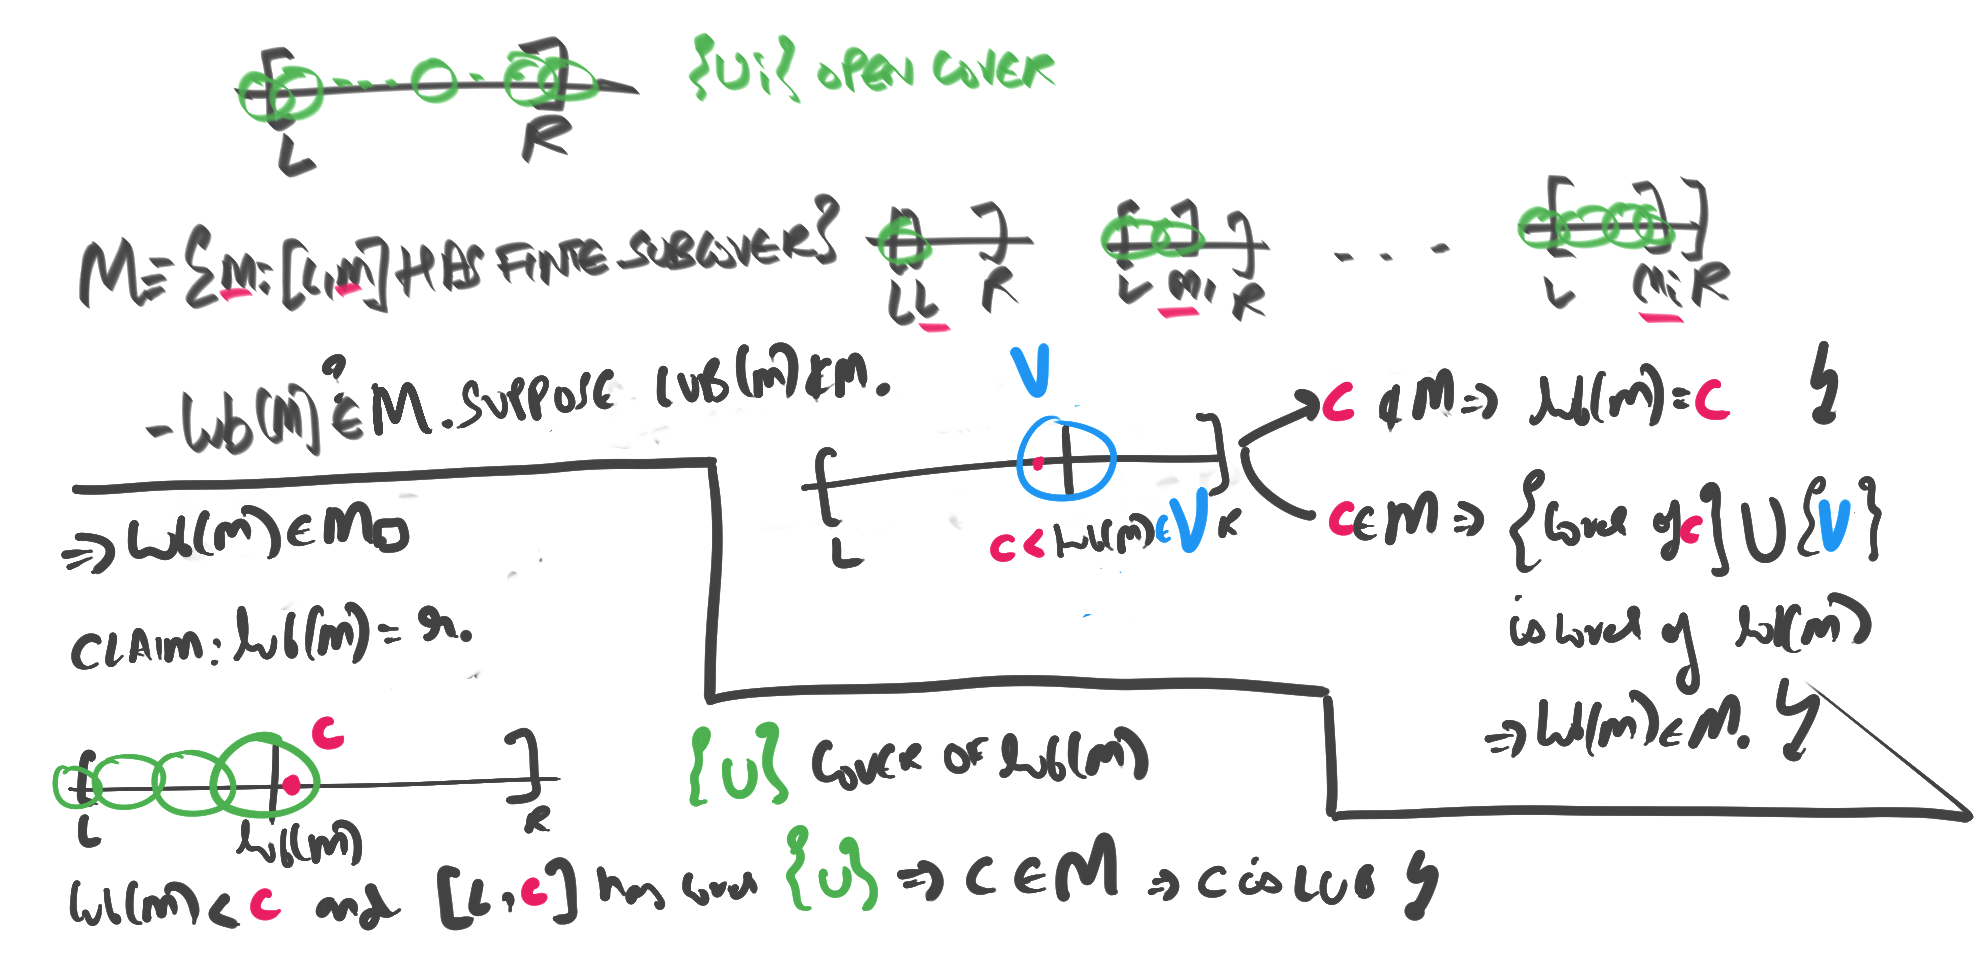 {Ui} OPEN COVER
L R
M = {m: [L,m] HAS FINTE SUBCOVER}
L L R
L M1 R
...
L Mi R
- lub(M) ∈? M. SUPPOSE LUB(M) ∉ M.
V
L c < lub(M) ∈ V R
c ∉ M ⇒ lub(M) = c ↯
c ∈ M ⇒ {cover of c] ∪ {V}
is cover of lub(M)
⇒ lub(M) ∈ M. ↯
⇒ lub(M) ∈ M □
CLAIM: lub(M) = r.
c
L lub(M) R
{U} COVER OF lub(M)
lub(M) < c and [L, c] has cover {U} ⇒ C ∈ M ⇒ C is LUB ↯